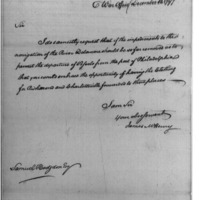 War Office, December 1797
Sir
I do earnestly request that if the impediments to the
navigation of the River Delaware should be so far removed as to
permit the departure of Vessels from the port of Philadelphia
that you will embrace the opportunity of having the clothing
for Richmond and Charleston forwarded to those places
I am Sir
Your obedient
James McHenry
Samuel Hodgdon Esq